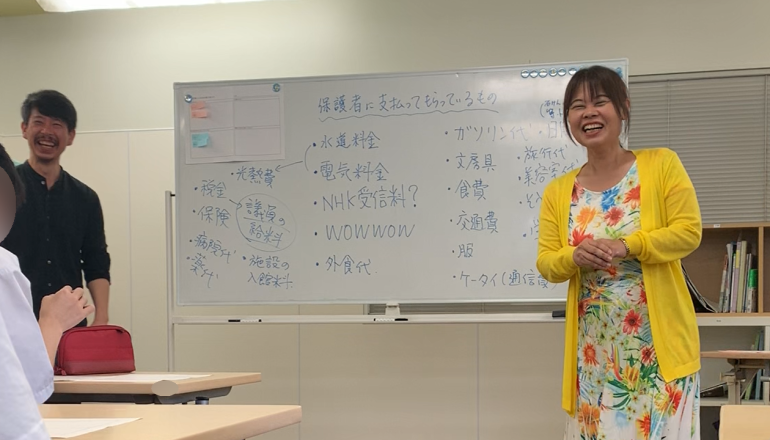 保護者に支払ってもらっているもの
・水道料金
・電気料金
・NHK受信料?
・WOWWOW
・外食代
・光熱費
・税金
・保険
・議員の
給料
・病院代
・薬代
・施設の
入館料
・ガソリン代
・文房具
・食費
・交通費
・服
・ケータイ(通信費
・旅行代